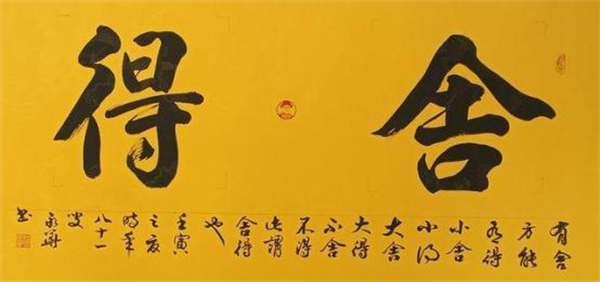 舍得
有舍
方能
有得
小舍
小得
大舍
大得
不舍
不得
此謂
舍得
也
壬寅
之夏
時年
八十一
叟
书